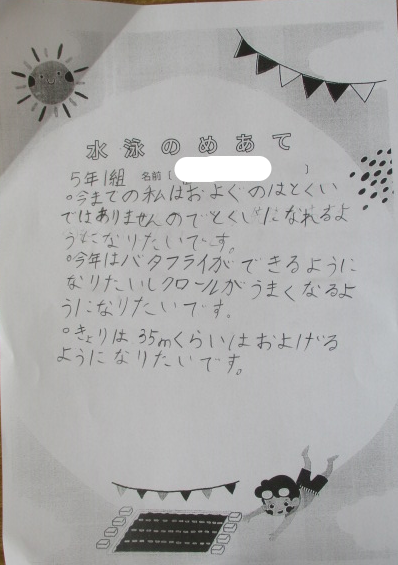 水泳のめあて
5年1組 名前[ ]
○今までの私はおよぐのはとくい
ではありませんのでとくいになれるよ
うになりたいです。
○今年はバタフライができるように
なりたいしクロールがうまくなるよ
うになりたいです。
○きょりは、35mくらいはおよげる
ようになりたいです。